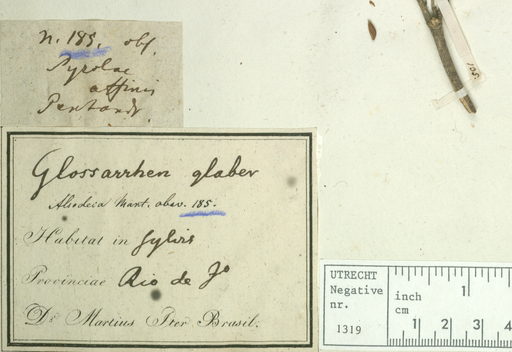 n. 185. obs.
Pyrolae
affinis
Pentandr.
105
Glossarrhen glaber
Alsodeia Mart. obsv. 185.
Habitat in sylvis
Provinciae Rio de Jo
Dr Martius Iter Brasil.
UTRECHT
Negative
nr.
1319
inch
cm
1
1 2 3 4